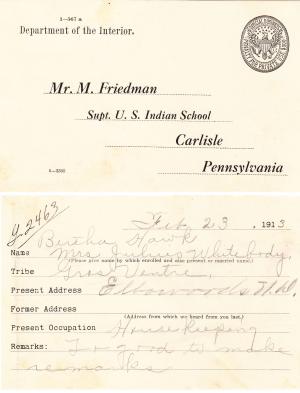 1-567 a
Department of the Interior.
Mr. M. Friedman
Supt. U. S. Indian School
Carlisle
Pennsylvania
y2463
Feb 23, 1913
Bertha Hawk
Name Mrs. Julius Whitebody,
(Please give name by which enrolled and also present or married name.)
Tribe Gros Ventre,
Present Address Elbowoods N.D.
Former Address
(Address from which we heard from you last.)
Present Occupation House Keeping
Remarks: To good to make
remarks